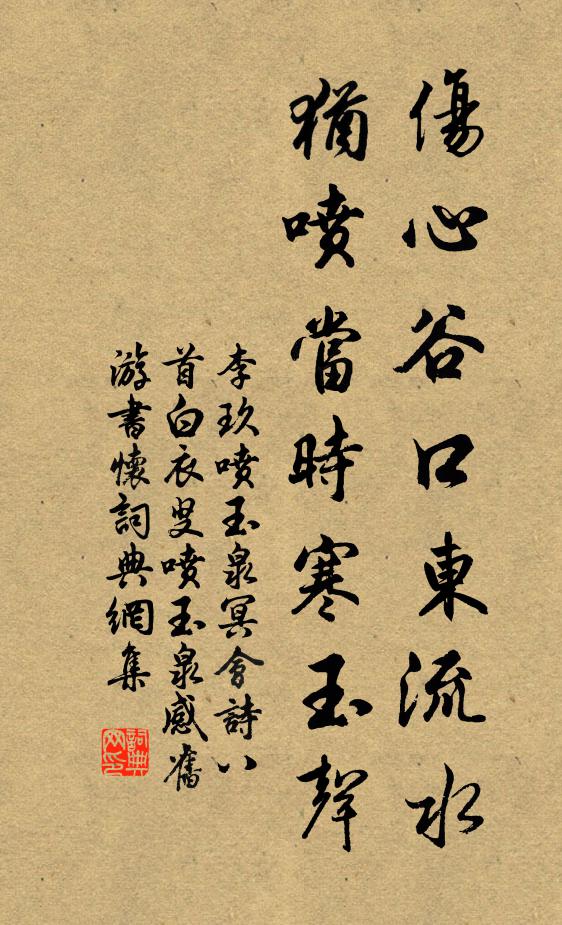 傷心谷口東流水
猶噴當時寒玉聲
李玖噴玉泉冥會詩八
首白衣叟噴玉泉感舊
游書懷詞典網集
詞典
网印